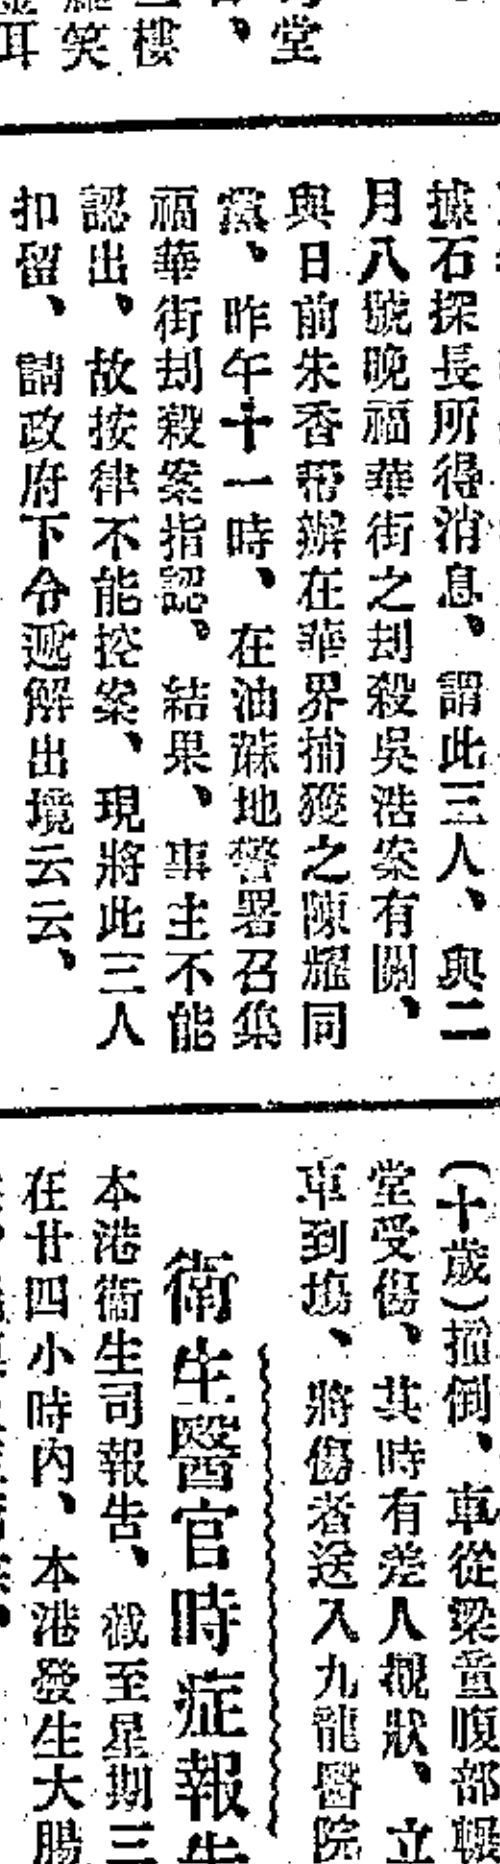 堂
樓
笑
耳
據石探長所得消息、謂此三人、與二
月八號晚福華街之刦殺吳浩案有關、
與日前朱香帮辦在華界捕獲之陳耀同
黨、昨午十一時、在油蔴地警署召集
福華街刦殺案指認、結果、事主不能
認出、故按律不能控案、現將此三人
扣留、請政府下令遞解出境云云、
(十歲)撞倒、車從梁童腹部輾
堂受傷、其時有差人覩狀、立
車到塲、將傷者送入九龍醫院
衛生醫官時症報告
本港衞生司報告、截至星期三
在廿四小時內、本港發生大腸